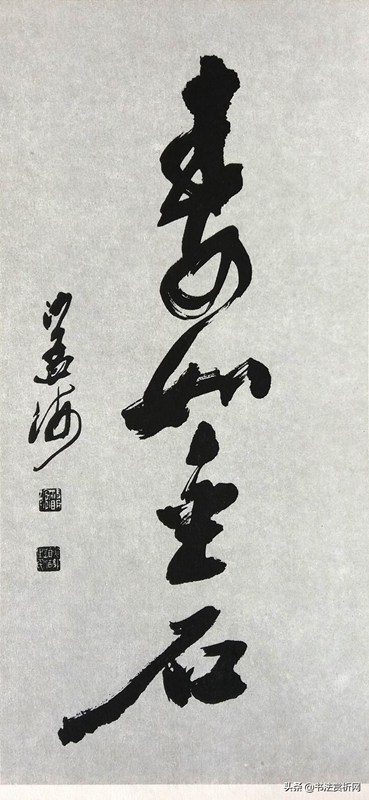 寿如金石
沙孟海
头条 @书法赏析网